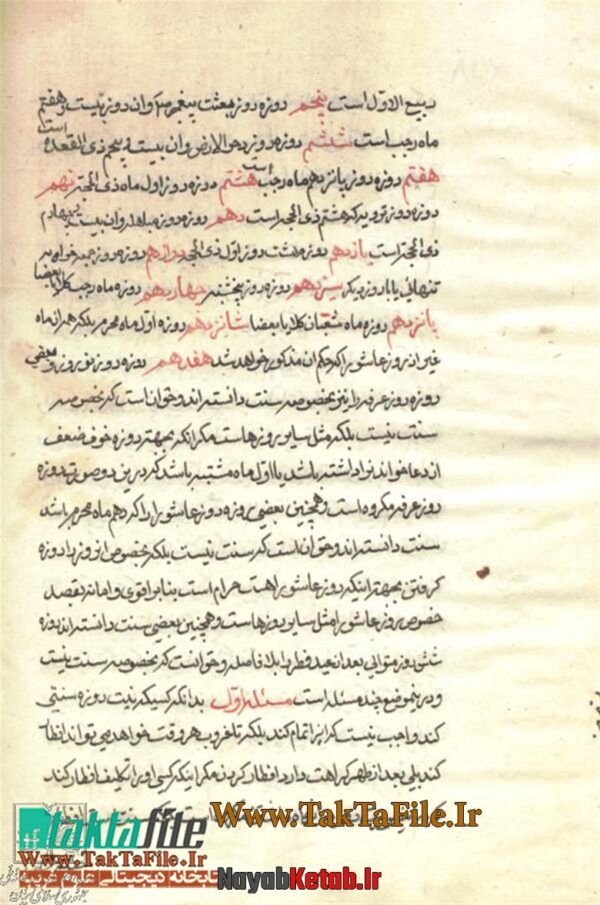 ربیع الاول است پنجم روزه روز مبعث پیغمبر ص و آن روز بیست و هفتم
ماه رجب است ششم روزه روز دحو الارض و آن بیست و پنجم ذی القعده است
هفتم روزه روز پانزدهم ماه رجب است هشتم روزه روز اول ماه ذی الحجه نهم
روزه روز ترویه که هشتم ذی الحجه است دهم روزه روز مباهله و آن بیست چهارم
ذی الحجه است یازدهم روزه هشت روز اول ذی الحجه دوازدهم روزه روز جمعه خواه به
تنهائی یا با روز دیگر سیزدهم روزه روز پنجشنبه چهاردهم روزه ماه رجب کلا یا بعضا
پانزدهم روزه ماه شعبان کلا یا بعضا شانزدهم روزه اول ماه محرم بلکه همه آن ماه
غیر از روز عاشورا که حکم آن مذکور خواهد شد هفدهم روزه روز نوروز و بعضی
روزه روز عرفه را نیز بخصوصه سنت دانسته اند و حق آن است که بخصوصه
سنت نیست بلکه مثل سایر روزها است مگر آنکه بجهة روزه خوف ضعف
از دعا خواندن داشته باشد یا اول ماه مشتبه باشد که درین دو صورت روزه
روز عرفه مکروه است و همچنین بعضی روزه روز عاشورا را که دهم ماه محرم باشد
سنت دانسته اند و حق آن است که سنت نیست بلکه بخصوص آن روز را روزه
گرفتن بجهة اینکه روز عاشورا هست حرام است بنا بر اقوی و اما نه بقصد
خصوص روز عاشورا مثل سایر روزها است و همچنین بعضی سنت دانسته اند روزه
شش روز متوالی بعد از عید فطر را بلا فاصله و حق آنست که بخصوصه سنت نیست
و در اینموضع چند مسئله است مسئله اول بدانکه کسیکه نیت روزه سنتی
کند واجب نیست که آنرا تمام کند بلکه تا غروب هر وقت خواهد می تواند افطار
کند بلی بعد از ظهر کراهت دارد افطار کردن مگر اینکه کسی او را تکلیف افطار کند
www.TakTaFile.Ir
taktafile
www.TakTaFile.Ir
کتابخانه دیجیتالی علوم غریبه
NayabKetab.Ir